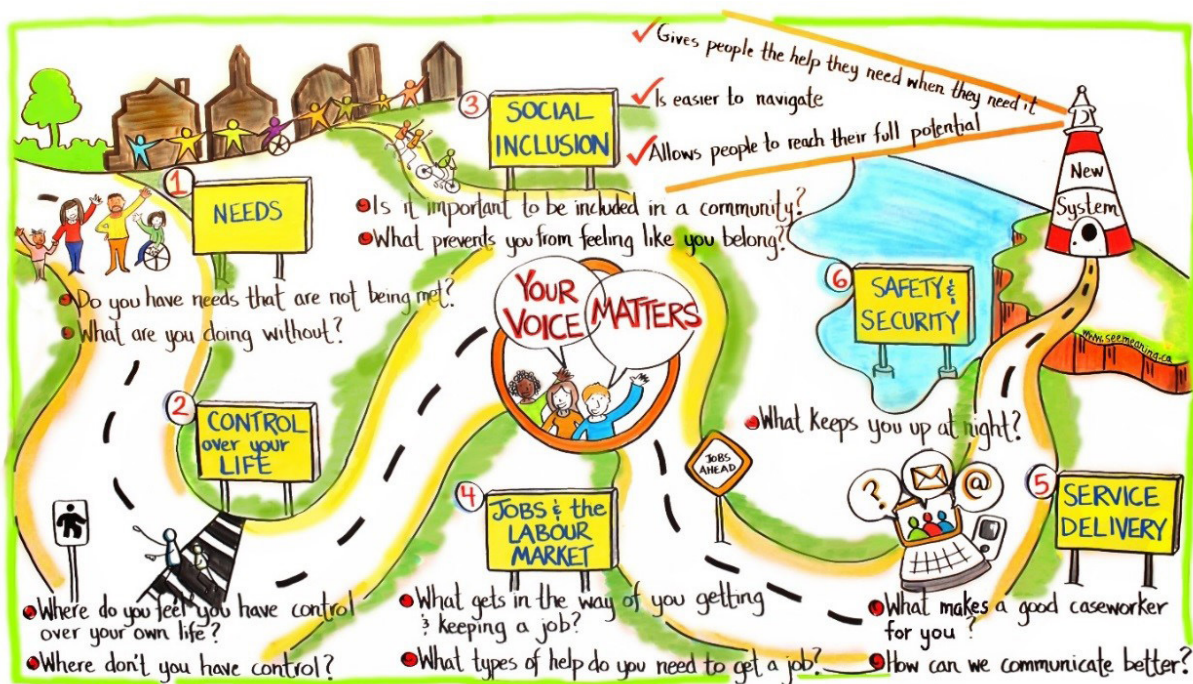 ✓ Gives people the help they need when they need it
✓ Is easier to navigate
✓ Allows people to reach their full potential
New
System
1
NEEDS
• Do you have needs that are not being met?
• What are you doing without?
2
CONTROL
over your
LIFE
• Where do you feel you have control
over your own life?
• Where don't you have control?
3
SOCIAL
INCLUSION
• Is it important to be included in a community?
• What prevents you from feeling like you belong?
YOUR
VOICE
MATTERS
4
JOBS & the
LABOUR
MARKET
• What gets in the way of you getting
& keeping a job?
• What types of help do you need to get a job?
JOBS
AHEAD
5
SERVICE
DELIVERY
? @
• What makes a good caseworker
for you?
• How can we communicate better?
6
SAFETY &
SECURITY
• What keeps you up at night?
www.seemeaning.ca